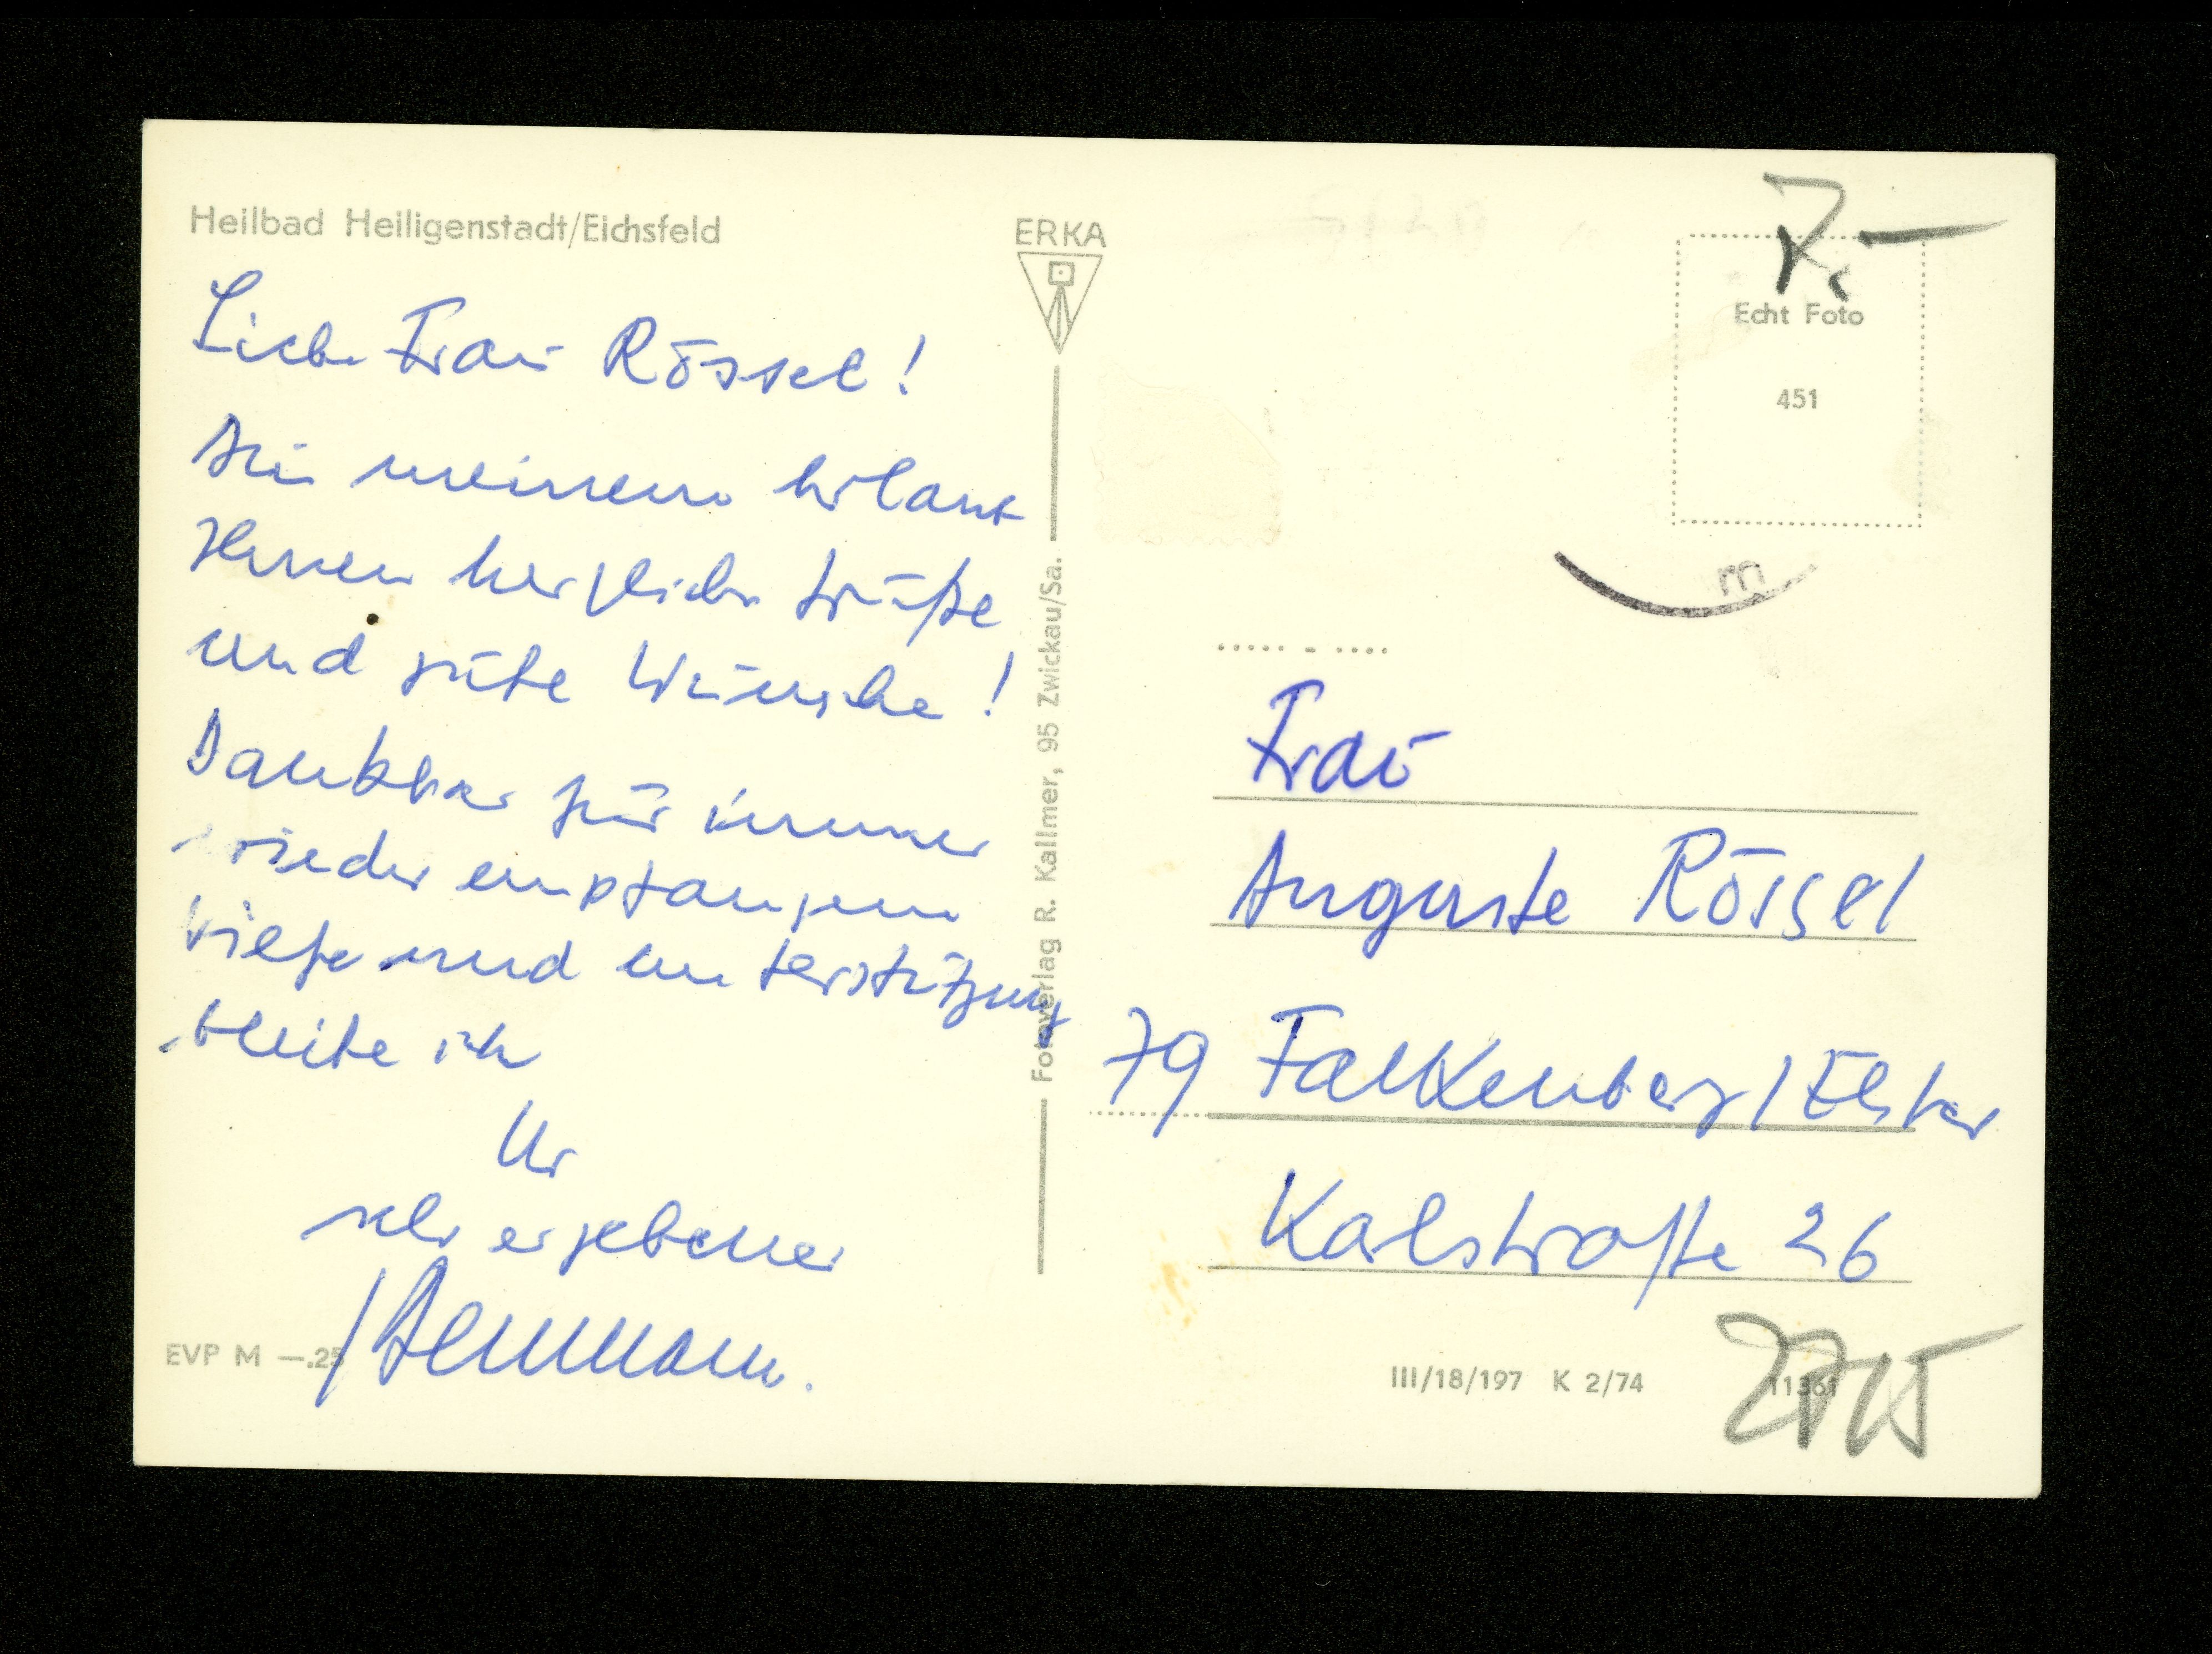 Heilbad Heiligenstadt/Eichsfeld
Liebe Frau Rössel!
Aus meinem Urlaub
Ihnen herzliche Grüße
und gute Wünsche!
Dankbar für immer
wieder empfangene
Hilfe und Unterstützung
bleibe ich
Ihr
sehr ergebener
EVP M —.25
ERKA
Fotoverlag R. Kallmer, 95 Zwickau/Sa.
7,-
Echt Foto
451
m
Frau
Auguste Rössel
79 Falkenberg/Elster
Karlstraße 26
III/18/197 K 2/74
11361